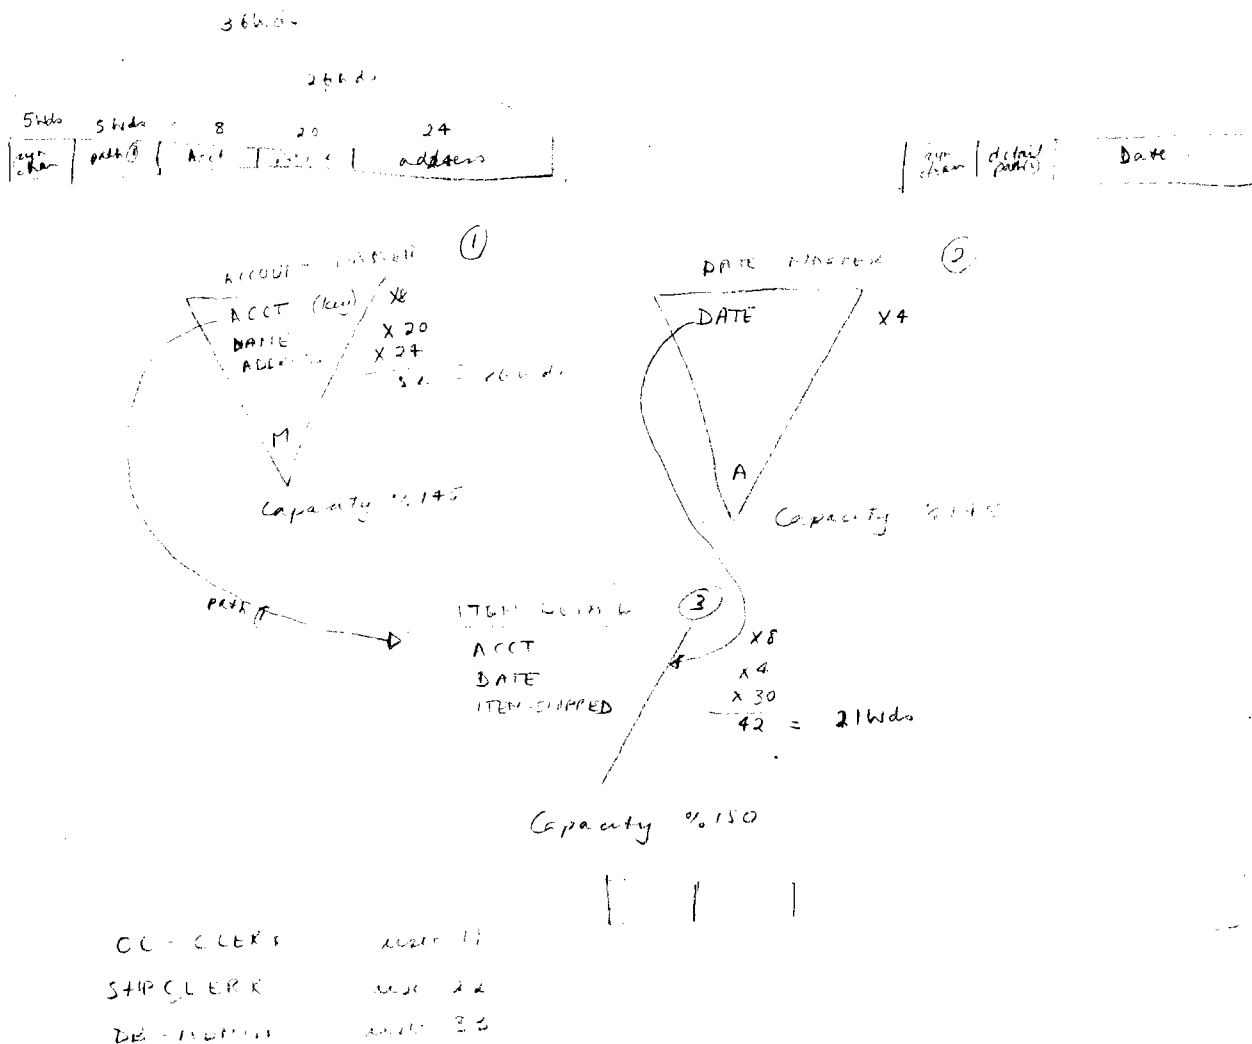 36wds
26wds
5wds 5wds 8 20 24
syn chain path① Acct address
syn chain detail path(s) Date
ACCOUNT-MASTER ①
ACCT (key) X8
NAME X 20
ADDRESS X 24
Capacity % 145
M
DATE MASTER ②
DATE X4
A
Capacity
path
ITEM ③
ACCT X8
DATE X4
ITEM-SHIPPED X 30
42 = 21Wds
Capacity % 150
CL-CLERK user 11
SHPCLERK 22
DB-ADMIN 33